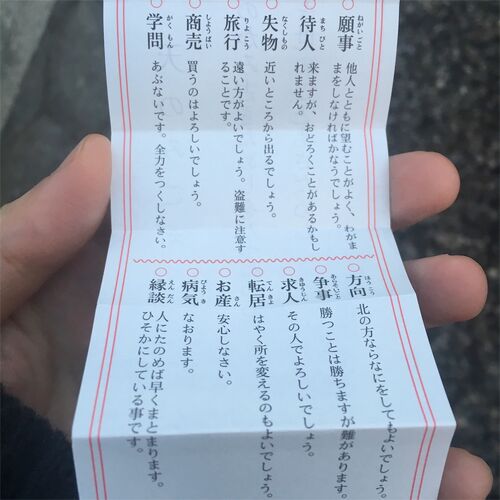 願事 ねがいごと
他人とともに望むことがよく、わがま
まをしなければかなうでしょう。
待人 まちびと
来ますが、おどろくことがあるかもし
れません。
失物 なくしもの
近いところから出るでしょう。
旅行 りよこう
遠い方がよいでしょう。盗難に注意す
ることです。
商売 しようばい
買うのはよろしいでしょう。
学問 がくもん
あぶないです。全力をつくしなさい。
方向 ほうこう
北の方ならなにをしてもよいでしょう。
争事 あらそいごと
勝つことは勝ちますが難があります。
求人 きゆうじん
その人でよろしいでしょう。
転居 てんきよ
はやく所を変えるのもよいでしょう。
お産 さん
安心しなさい。
病気 びようき
なおります。
縁談 えんだん
人にたのめば早くまとまります。
ひそかにしている事です。